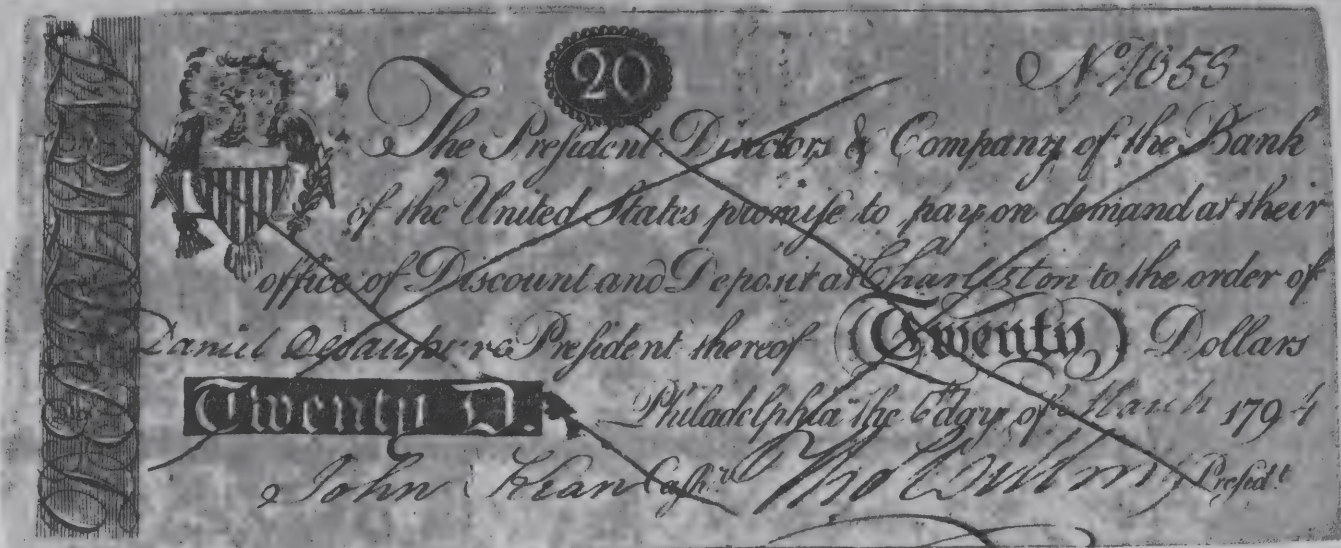 20
Nº 1855
The Preſident Directors & Company of the Bank
of the United States promiſe to pay on demand at their
office of Discount and Deposit at Charleston to the order of
Daniel Preſident thereof (Twenty) Dollars
Twenty D. Philadelphia the 6 day of March 1794
John Kean Cashr. Tho Willing Preſidt.